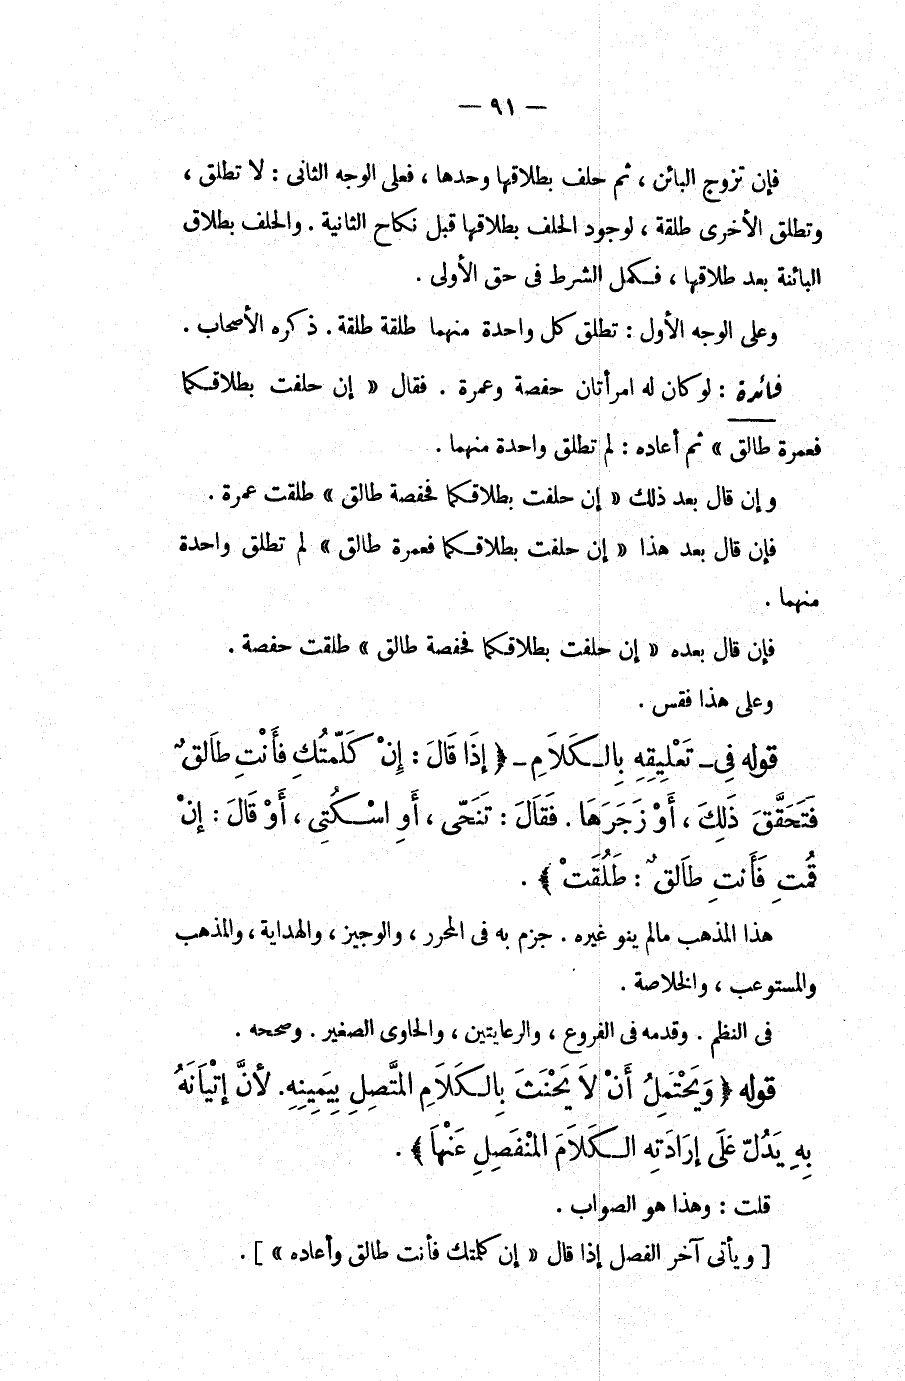 — ٩١ —
فإن تزوج البائن ، ثم حلف بطلاقها وحدها ، فعلى الوجه الثانى : لا تطلق ،
وتطلق الأخرى طلقة ، لوجود الحلف بطلاقها قبل نكاح الثانية . والحلف بطلاق
البائنة بعد طلاقها ، فكمل الشرط فى حق الأولى .
وعلى الوجه الأول : تطلق كل واحدة منهما طلقة طلقة . ذكره الأصحاب .
فائدة : لو كان له امرأتان حفصة وعمرة . فقال « إن حلفت بطلاقكما
فعمرة طالق » ثم أعاده : لم تطلق واحدة منهما .
وإن قال بعد ذلك « إن حلفت بطلاقكما فحفصة طالق » طلقت عمرة .
فإن قال بعد هذا « إن حلفت بطلاقكما فعمرة طالق » لم تطلق واحدة
منهما .
فإن قال بعده « إن حلفت بطلاقكما فحفصة طالق » طلقت حفصة .
وعلى هذا فقس .
قوله فِى ـ تَعْلِيقِهِ بِالكَلاَمِ ـ ﴿ إِذَا قَالَ : إِنْ كَلَّمتُكِ فأَنْتِ طاَلقٌ
فَتَحَقَّقَ ذَلِكَ ، أَوْ زَجَرَهَا . فَقَالَ : تَنَحَّى ، أَوِ اسْكُتِى ، أَوْ قَالَ : إِنْ
قُمتِ فَأَنتِ طاَلقٌ : طَلُقَتْ ﴾ .
هذا المذهب مالم ينو غيره . جزم به فى المحرر ، والوجيز ، والهداية ، والمذهب
والمستوعب ، والخلاصة .
فى النظم . وقدمه فى الفروع ، والرعايتين ، والحاوى الصغير . وصححه .
قوله ﴿ وَيَحْتَمِلُ أَنْ لاَ يَحْنَثَ بِالكَلاَمِ المتَّصِلِ بِيَمِينِهِ. لأنَّ إِتْيَانَهُ
بِهِ يَدُلّ عَلَى إِرَادَتِه الكَلاَمَ المْنفَصِلِ عَنْهاَ ﴾ .
قلت : وهذا هو الصواب .
[ ويأتى آخر الفصل إذا قال « إن كلمتك فأنت طالق وأعاده » ] .